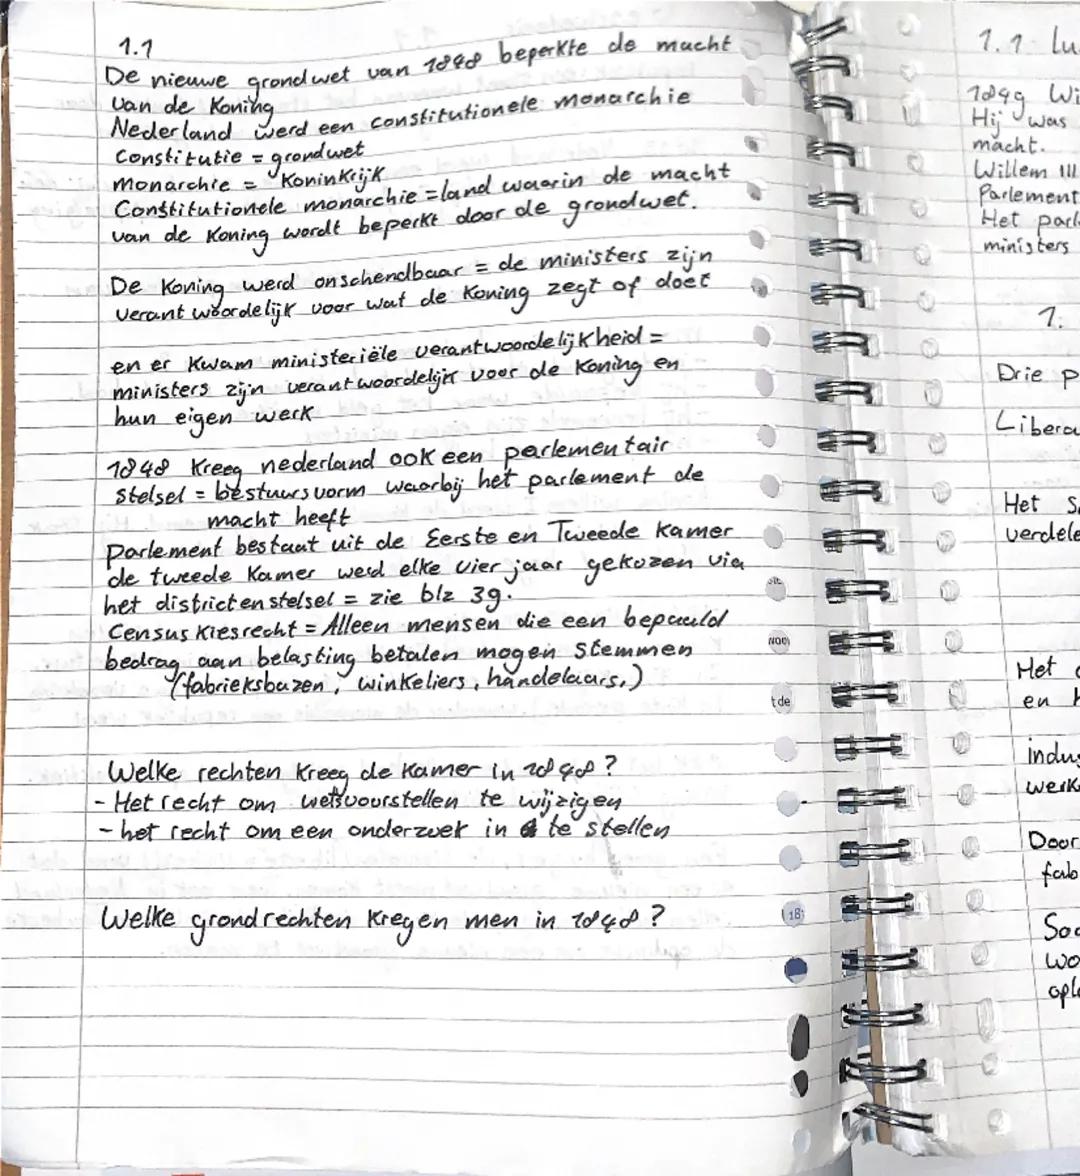 1.1
De nieuwe grondwet van 1848 beperkte de macht
van de Koning
Nederland werd een constitutionele monarchie
Constitutie = grondwet
monarchie = KoninKrijK
Constitutionele monarchie = land waarin de macht
van de Koning wordt beperkt door de grondwet.
De Koning werd onschendbaar = de ministers zijn
verantwoordelijk voor wat de Koning zegt of doet
en er Kwam ministeriële verantwoordelijkheid =
ministers zijn verantwoordelijk voor de Koning en
hun eigen werk
1848 Kreeg nederland ook een parlementair
stelsel = bestuursvorm waarbij het parlement de
macht heeft
parlement bestaat uit de Eerste en Tweede Kamer
de tweede Kamer werd elke vier jaar gekozen via
het districtenstelsel = zie blz 39.
Census Kiesrecht = Alleen mensen die een bepaald
bedrag aan belasting betalen mogen stemmen
(fabrieksbazen, winkeliers, handelaars,)
Welke rechten Kreeg de Kamer in 1848?
- Het recht om wetsvoorstellen te wijzigen
- het recht om een onderzoek in te stellen
Welke grondrechten Kregen men in 1848?
1.1 Lu
1849 Wi
Hij was
macht.
Willem III
Parlement
Het parl
ministers
1.
Drie p
Libera
Het S
verdele
Het
en
indus
werk
Door
fab
Soc
wo
opl
t de
18